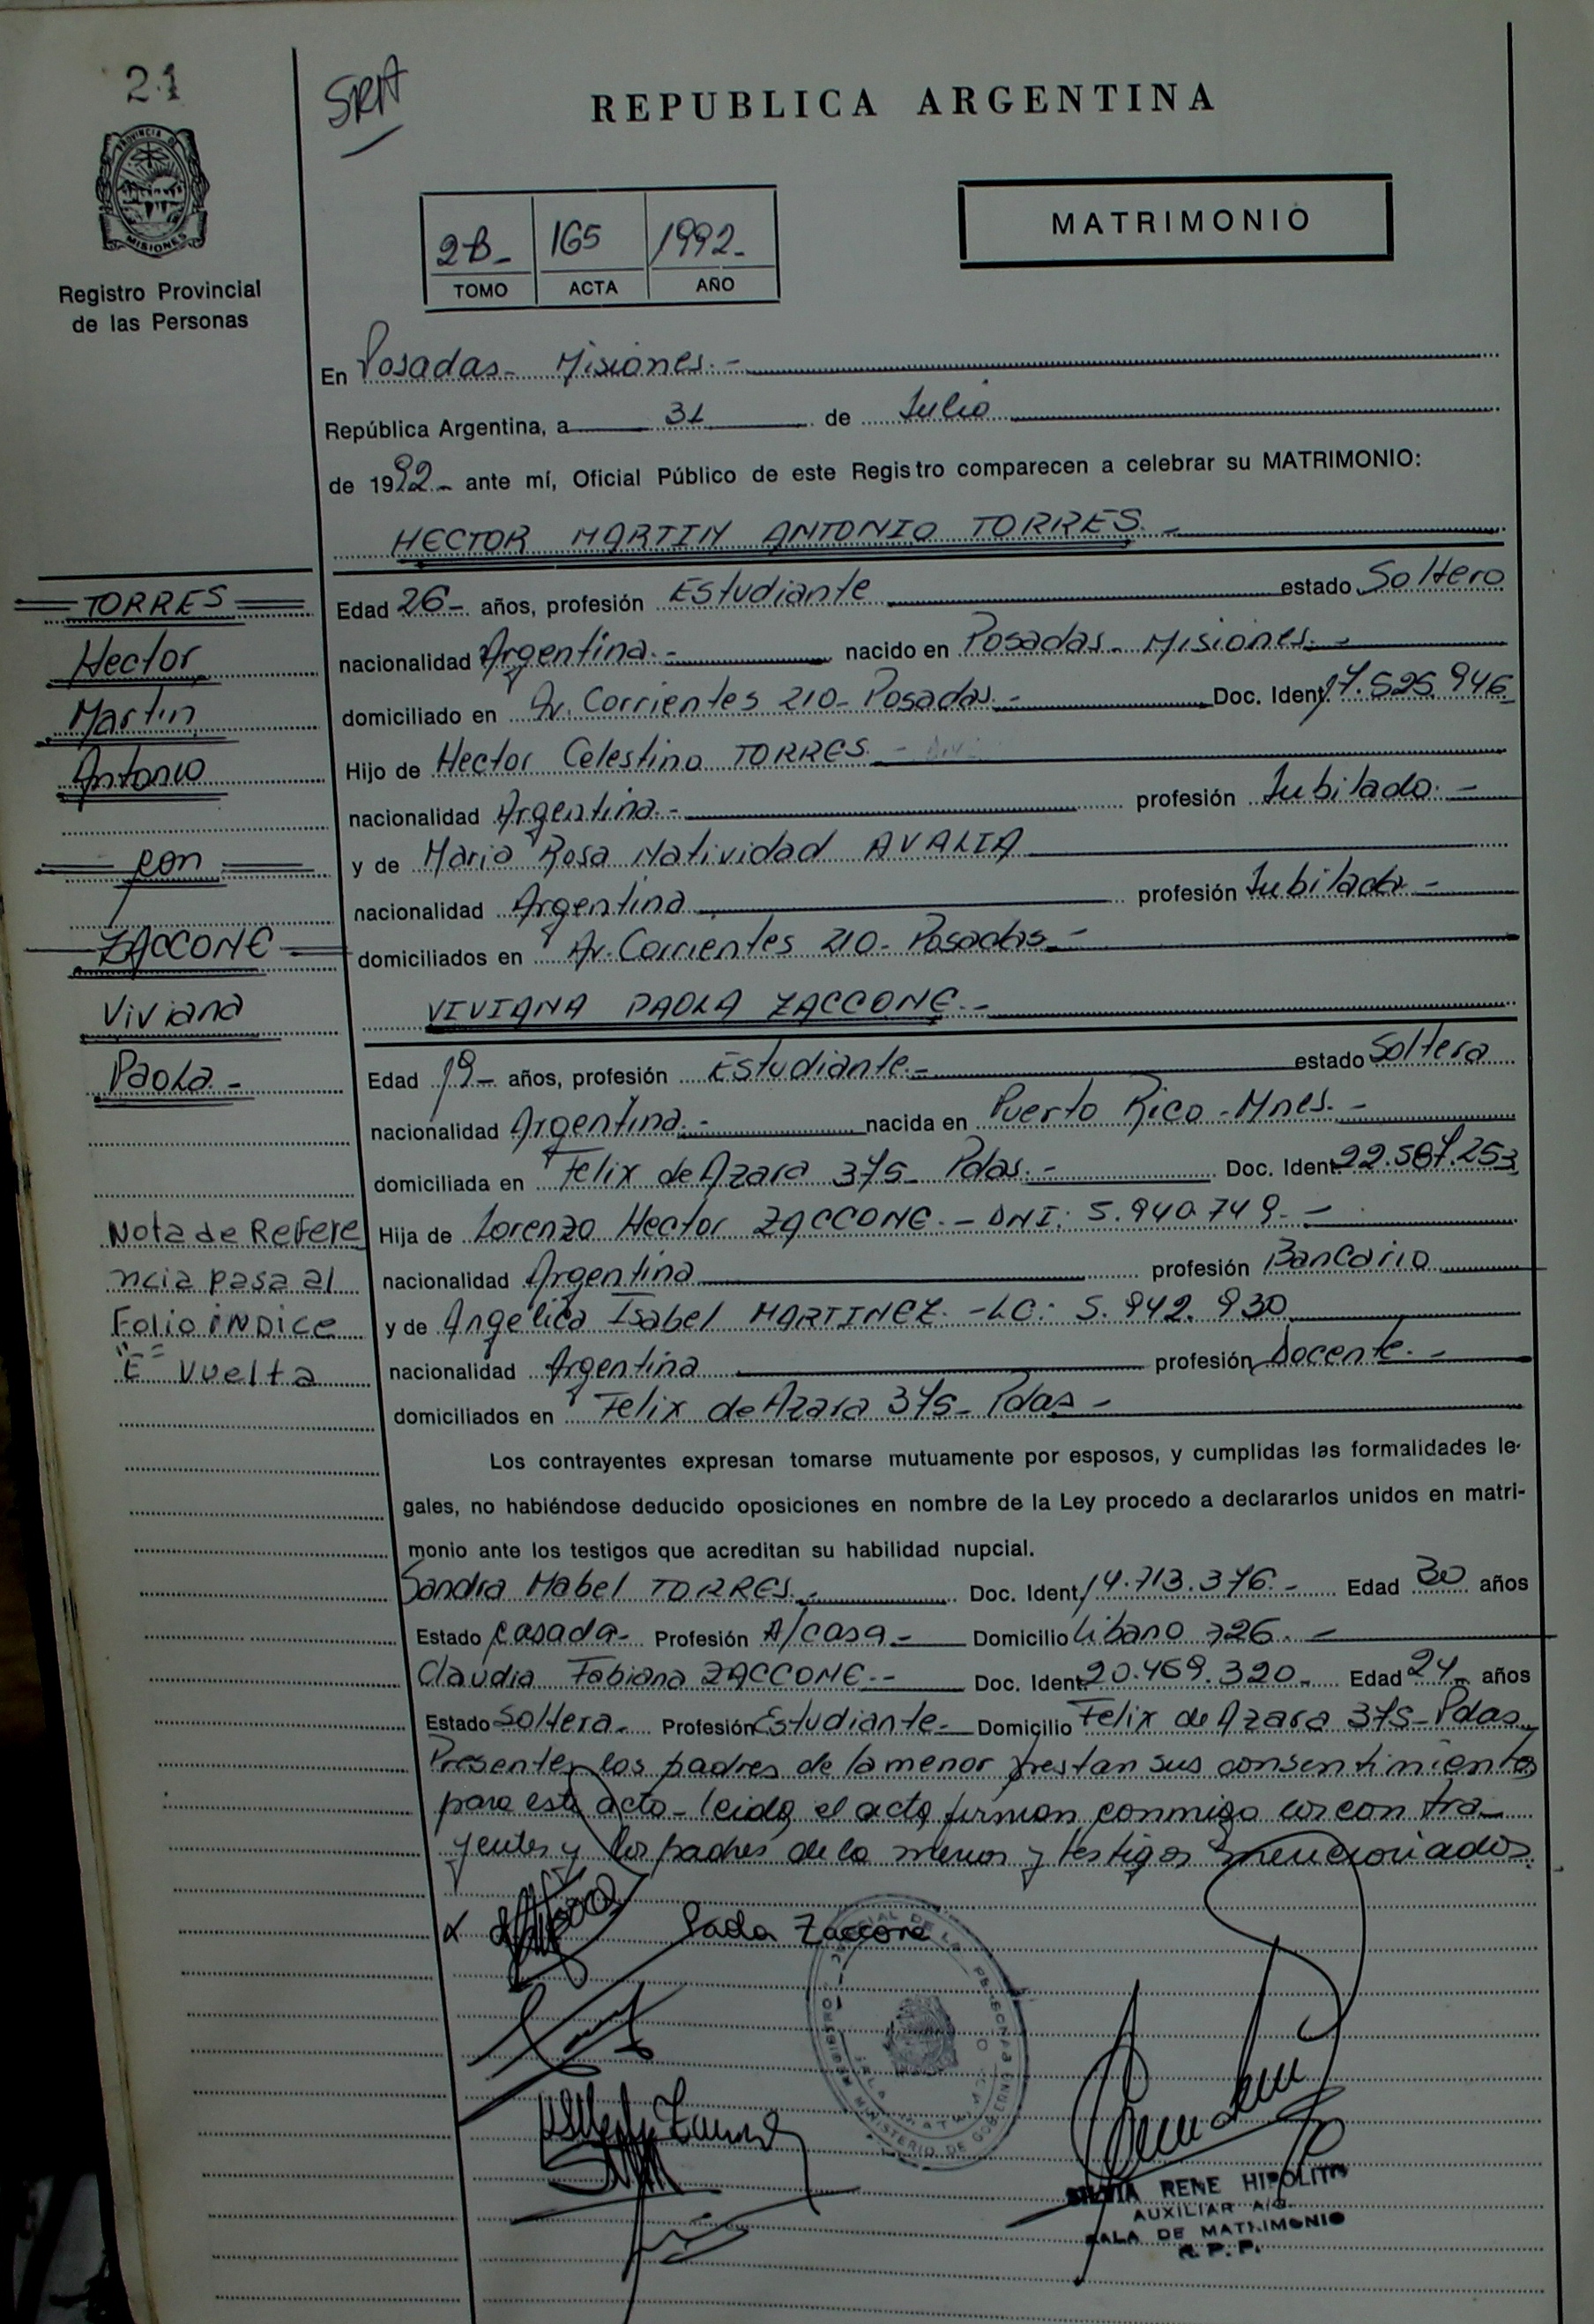 21
SRA
REPUBLICA ARGENTINA
PROVINCIA DE
MISIONES
Registro Provincial
de las Personas
2B- 165 1992-
TOMO ACTA AÑO
MATRIMONIO
En Posadas- Misiones.-
República Argentina, a 31 de Julio
de 1992.- ante mí, Oficial Público de este Registro comparecen a celebrar su MATRIMONIO:
HECTOR MARTIN ANTONIO TORRES.-
TORRES
Hector
Martin
Antonio
con
ZACCONE
Viviana
Paola-
Edad 26- años, profesión Estudiante estado Soltero
nacionalidad Argentina.- nacido en Posadas- Misiones.-
domiciliado en Av. Corrientes 210- Posadas.- Doc. Ident. 17.525.946
Hijo de Hector Celestino TORRES.-
nacionalidad Argentina.- profesión Jubilado.-
y de Maria Rosa Natividad AVALIA
nacionalidad Argentina profesión Jubilada-
domiciliados en Av. Corrientes 210- Posadas-
VIVIANA PAOLA ZACCONE.-
Edad 19- años, profesión Estudiante.- estado Soltera
nacionalidad Argentina.- nacida en Puerto Rico-Mnes.-
domiciliada en Felix de Azara 375- Pdas.- Doc. Ident. 22.587.253
Hija de Lorenzo Hector ZACCONE.- DNI: 5.940.749.-
nacionalidad Argentina profesión Bancario
y de Angelica Isabel MARTINEZ.-LC: 5.942.930
nacionalidad Argentina profesión Docente.-
domiciliados en Felix de Azara 375- Pdas-
Nota de Refere
ncia pasa al
Folio iNDice
"E" Vuelta
Los contrayentes expresan tomarse mutuamente por esposos, y cumplidas las formalidades le-
gales, no habiéndose deducido oposiciones en nombre de la Ley procedo a declararlos unidos en matri-
monio ante los testigos que acreditan su habilidad nupcial.
Sandra Mabel TORRES.- Doc. Ident. 14.713.376.- Edad 30 años
Estado casada- Profesión A/casa- Domicilio Libano 726.-
Claudia Fabiana ZACCONE.- Doc. Ident. 20.469.320- Edad 24- años
Estado Soltera- Profesión Estudiante- Domicilio Felix de Azara 375-Pdas
Presentes los padres de la menor prestan sus consentimientos
para este acto- leida el acta firman conmigo los contra-
yentes y los padres de la menor y testigos mencionados
Paola Zaccone
MINISTERIO DE GOBIERNO
SILVIA RENE HIPOLITO
AUXILIAR A/C.
SALA DE MATRIMONIO
R. P. P.